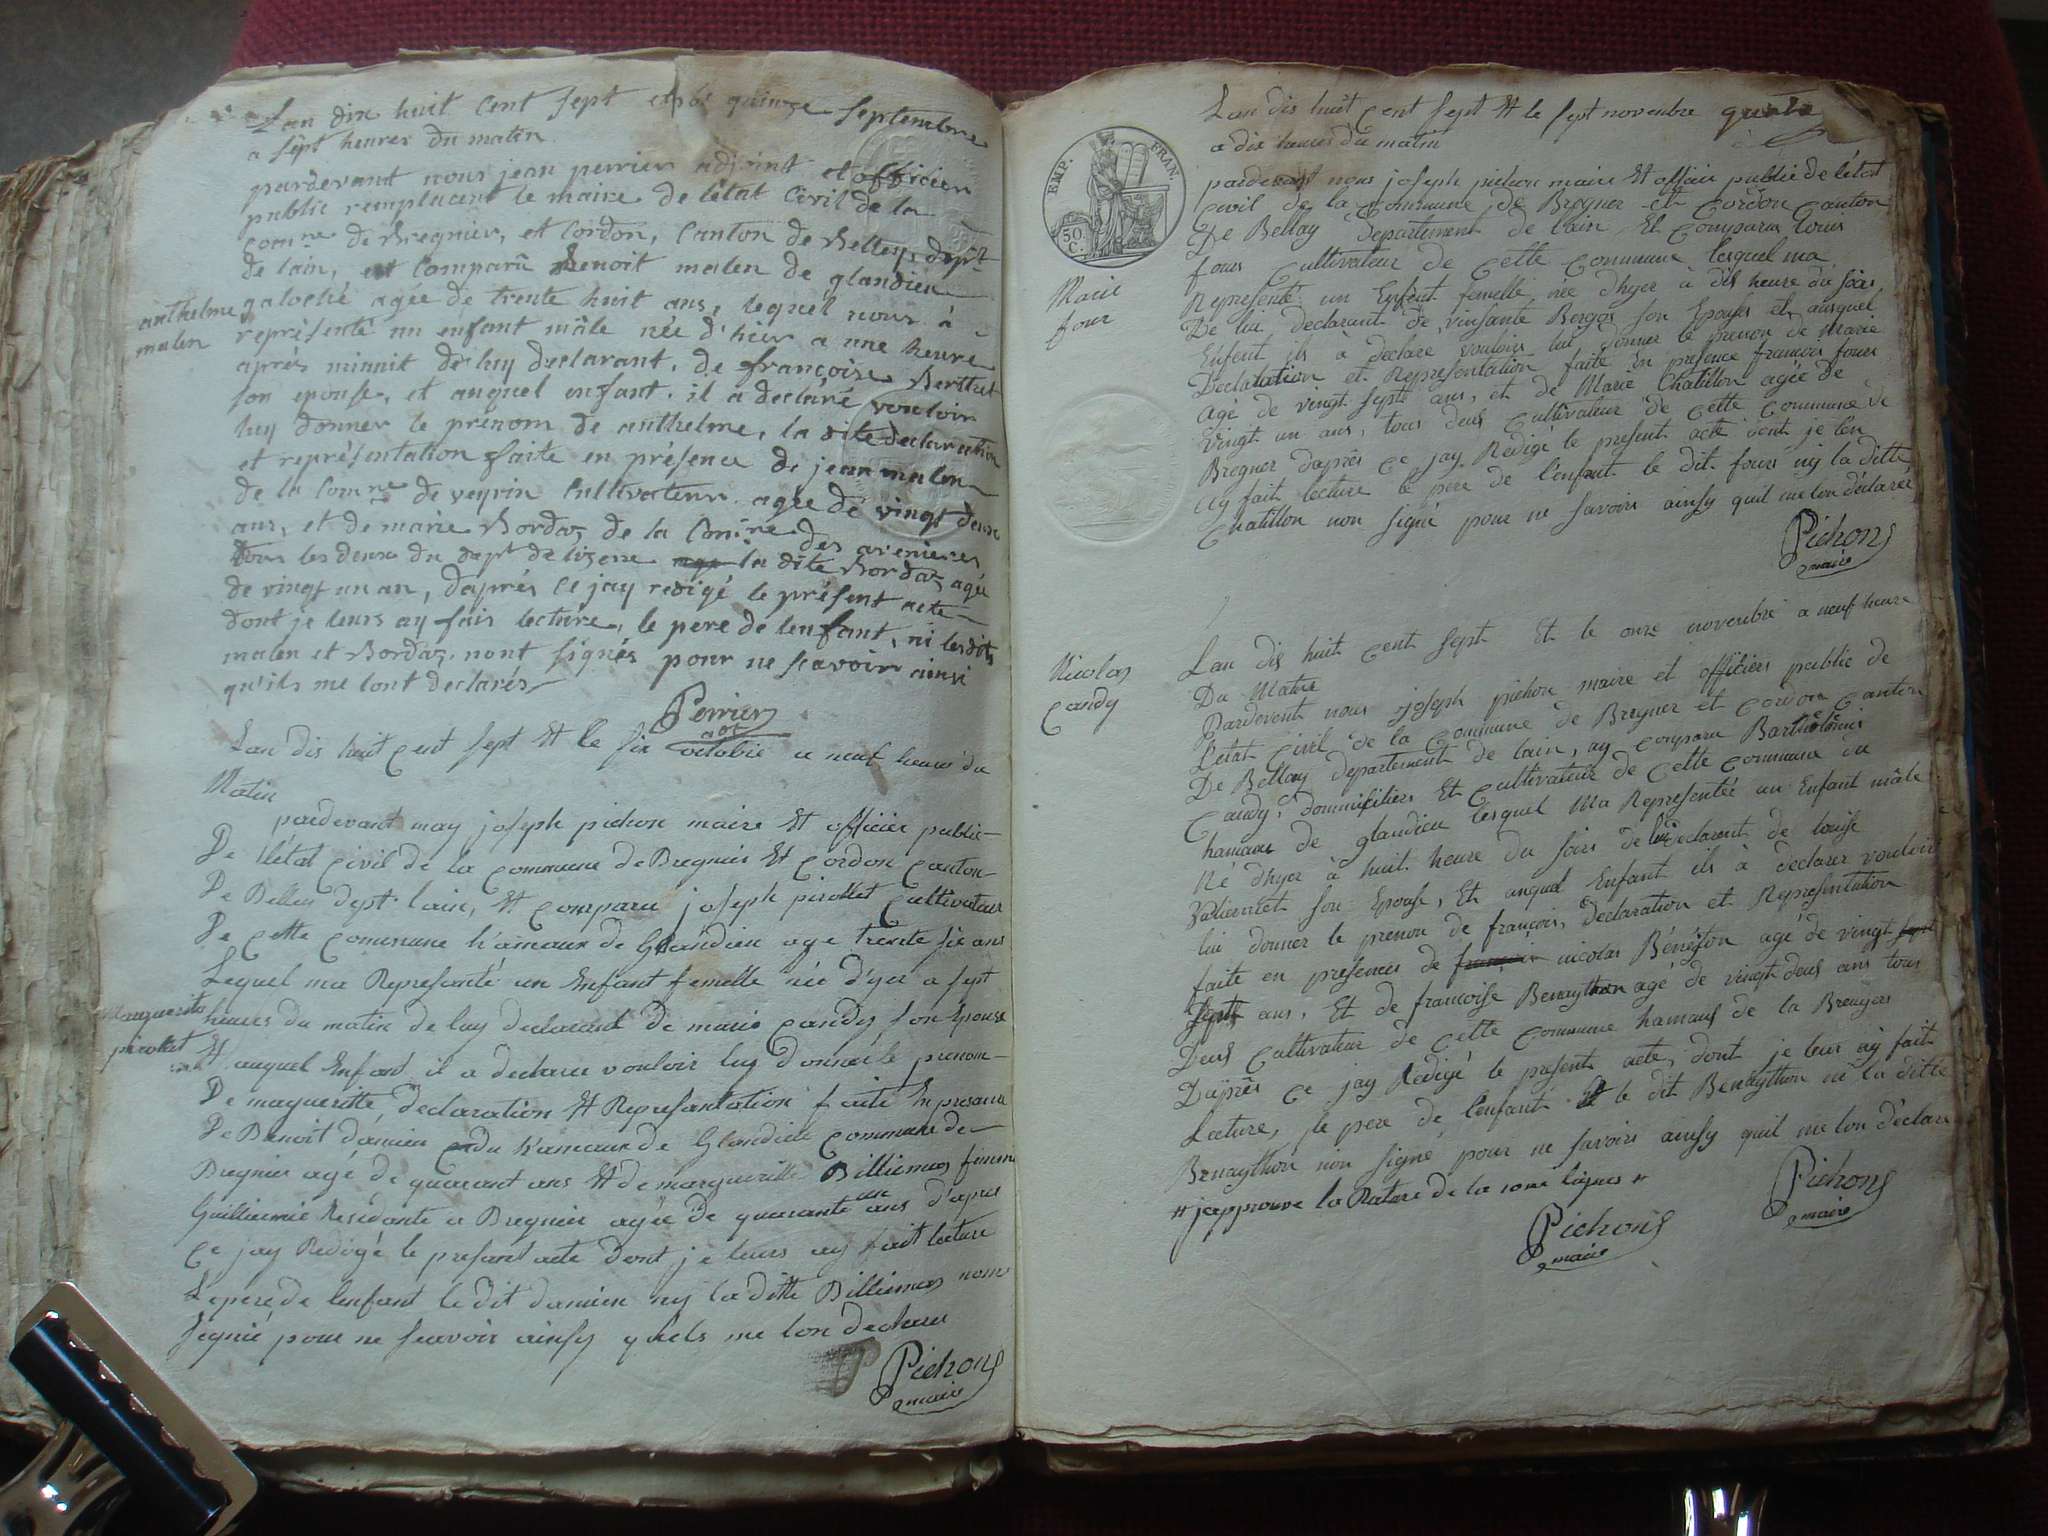 Lan dix huit Cent sept et le quinze septembre
a sept heures du matin
pardevant nous jean perrier adjoint et officier
public remplacent le maire de létat Civil de la
comne de Bregnier, et Cordon, Canton de Belley, dept
de lain, est Comparû Benoit malen de glandieu
galochié agée de trente huit ans, lequel nous à
représenté un enfant mâle née d'hier a une heure
après minuit de luy declarant, de françoise Berthet
son epouse, et auquel enfant, il a déclaré vouloir
luy donner le prénom de anthelme, la dite declaration
et représentation faite en présence de jean malen
de la Comne de veyrin Cultivateur agée de vingt deux
ans, et de marie Bordaz de la Comne des avenieres
tous les deux du dept de lizere la dite Bordaz agée
de vingt un an, daprés ce jay redigé le présent acte
dont je leurs ay fais lecture, le pere de lenfant, ni lesdits
malen et Bordaz, nont signés pour ne scavoir ainsi
qu'ils me lont declarés
Perrier
adt
anthelme
malen
Lan dis huit cent sept Et le six octobre a neuf heure du
Matin
pardevant moy joseph pichon maire Et officier public
De létat civil de la commune de Bregnier Et cordon canton
De Belley dept lain, Et comparu joseph pirollet cultivateur
De cette commune h'ameaux de Glandieu age trente six ans
Lequel ma Representé un Enfant femelle née d'yer a sept
heures du matin de luy declarant de marie candy son Epouse
Et auquel Enfant il a declarer vouloir luy donnée le prenom
De magueritte, declaration Et Representation faite En presance
De Benoit damien du h'ameaux de Glandieu commune de
Bregnier agé de quarant ans Et de margueritte Billiemas femme
Guilliermie Residante a Bregnier agée de quarante un ans d'apres
ce jay Redigé le present acte dont je leurs ay fait lecture
Le pere de lenfant le dit damien ny la ditte Billiemas nom
signié pour ne scavoir ainsy quels me lon declarer
Pichon
maire
Marguerite
pirollet
Lan dis huit cent sept Et le sept novembre
a dix heures du matin
EMP. FRAN.
50 C.
pardevant nous joseph pichon maire Et officié public de létat
civil de la commune de Bregner et cordon canton
De Bellay departement de lain Et comparus louis
fours cultivateur de cette commune lesquel ma
Representé un Enfent femelle née dhyer à dis heure du soir
De lui declarant de vinsante Berger son Epouse et auquel
Enfent ils à declare vouloir lui donner le prenon de marie
Declatation et Representation faite En presence francois fours
agé de vingt sept ans, et de Marie Chatillon agée de
vingt un ans, tous deus cultivateur de cette commune de
Bregner daprès ce jay Redigé le present acte dont je leu
ay fait lecture le pere de l'enfant le dit fours ny la ditte
Chatillon non signé pour ne savoir ainsy quil me lon declarer
Pichon
maire
Marie
four
Lan dis huit cent sept Et le onze novembre a neuf heure
Du Matin
Pardevent nous joseph pichon maire et officiers public de
Letat civil de la commune de Bregner et cordon canton
De Bellay departement de lain, ay comparu Bartholémis
Candy, dommiciliers Et cultivateur de cette commune au
hamaux de glandieu lesquel Ma Representée un Enfant mâle
Né d'hyer à huit heure du soirs de lui declarent de louise
son Epouse, Et auquel Enfant ils à declarer vouloir
lui donner le prenon de francois, declaration et Representation
faite en presences de francois nicolas Bénéyton agé de vingt sept
sept ans, Et de francoise Benaython agé de vingt deus ans tous
Deus cultivateur de cette commune hamaus de la Bruyers
Daprês ce jay Redigé le present acte, dont je leur ay fait
Lecture, le pere de l'enfant Et le dit Benaython ni la ditte
Benaython non signé pour ne savoirs ainsy quil me lon déclare
# japprouve la Rature de la 10me lignes #
Pichon
maire
Pichon
maire
Nicolas
Candy